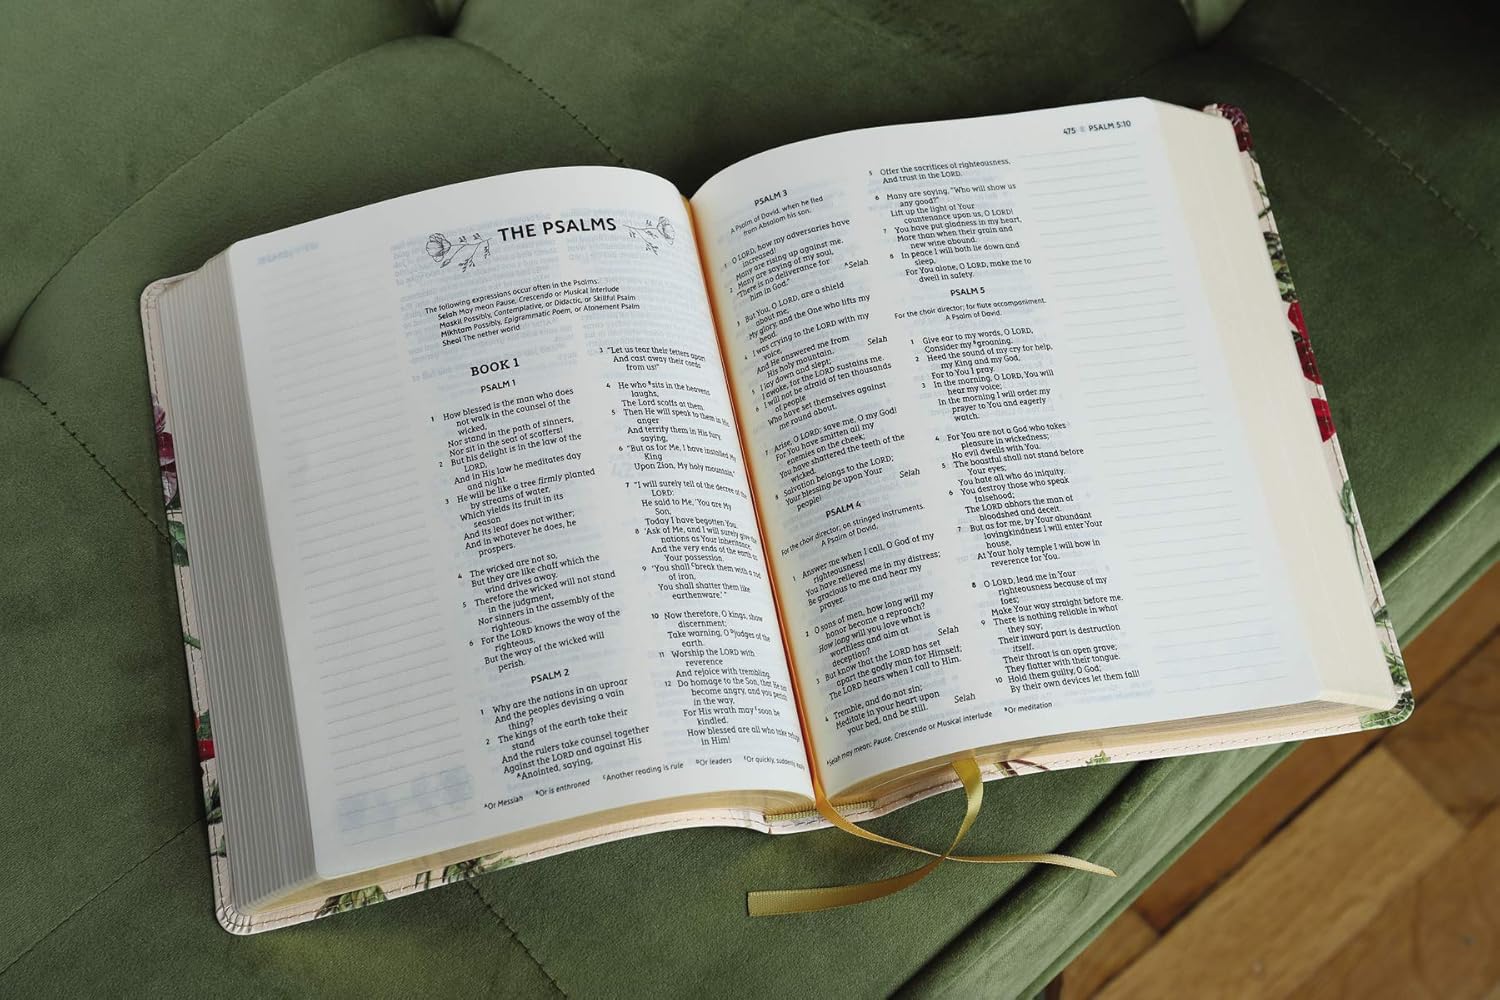 THE PSALMS
The following expressions occur often in the Psalms:
Selah May mean Pause, Crescendo or Musical Interlude
Maskil Possibly, Contemplative, or Didactic, or Skillful Psalm
Mikhtam Possibly, Epigrammatic Poem, or Atonement Psalm
Sheol The nether world
BOOK 1
PSALM 1
1 How blessed is the man who does
not walk in the counsel of the
wicked,
Nor stand in the path of sinners,
Nor sit in the seat of scoffers!
2 But his delight is in the law of the
LORD,
And in His law he meditates day
and night.
3 He will be like a tree firmly planted
by streams of water,
Which yields its fruit in its
season
And its leaf does not wither;
And in whatever he does, he
prospers.
4 The wicked are not so,
But they are like chaff which the
wind drives away.
5 Therefore the wicked will not stand
in the judgment,
Nor sinners in the assembly of the
righteous.
6 For the LORD knows the way of the
righteous,
But the way of the wicked will
perish.
PSALM 2
1 Why are the nations in an uproar
And the peoples devising a vain
thing?
2 The kings of the earth take their
stand
And the rulers take counsel together
Against the LORD and against His
ᴬAnointed, saying,
3 "Let us tear their fetters apart
And cast away their cords
from us!"
4 He who ᴮsits in the heavens
laughs,
The Lord scoffs at them.
5 Then He will speak to them in His
anger
And terrify them in His fury,
saying,
6 "But as for Me, I have installed My
King
Upon Zion, My holy mountain."
7 "I will surely tell of the decree of the
LORD:
He said to Me, 'You are My
Son,
Today I have begotten You.
8 'Ask of Me, and I will surely give the
nations as Your inheritance,
And the very ends of the earth as
Your possession.
9 'You shall ᶜbreak them with a rod
of iron,
You shall shatter them like
earthenware.'"
10 Now therefore, O kings, show
discernment;
Take warning, O ᴰjudges of the
earth.
11 Worship the LORD with
reverence
And rejoice with trembling.
12 Do homage to the Son, that He not
become angry, and you perish
in the way,
For His wrath may ᴱsoon be
kindled.
How blessed are all who take refuge
in Him!
ᴬOr Messiah ᴮOr is enthroned ᶜAnother reading is rule ᴰOr leaders ᴱOr quickly, suddenly, easily
475 PSALM 5:10
PSALM 3
A Psalm of David, when he fled
from Absalom his son.
1 O LORD, how my adversaries have
increased!
Many are rising up against me.
2 Many are saying of my soul,
"There is no deliverance for
him in God." ᴬSelah
3 But You, O LORD, are a shield
about me,
My glory, and the One who lifts my
head.
4 I was crying to the LORD with my
voice,
And He answered me from
His holy mountain. Selah
5 I lay down and slept;
I awoke, for the LORD sustains me.
6 I will not be afraid of ten thousands
of people
Who have set themselves against
me round about.
7 Arise, O LORD; save me, O my God!
For You have smitten all my
enemies on the cheek;
You have shattered the teeth of the
wicked.
8 Salvation belongs to the LORD;
Your blessing be upon Your
people! Selah
PSALM 4
For the choir director; on stringed instruments.
A Psalm of David.
1 Answer me when I call, O God of my
righteousness!
You have relieved me in my distress;
Be gracious to me and hear my
prayer.
2 O sons of men, how long will my
honor become a reproach?
How long will you love what is
worthless and aim at
deception? Selah
3 But know that the LORD has set
apart the godly man for Himself;
The LORD hears when I call to Him.
4 Tremble, and do not sin;
Meditate in your heart upon
your bed, and be still. Selah
5 Offer the sacrifices of righteousness,
And trust in the LORD.
6 Many are saying, "Who will show us
any good?"
Lift up the light of Your
countenance upon us, O LORD!
7 You have put gladness in my heart,
More than when their grain and
new wine abound.
8 In peace I will both lie down and
sleep,
For You alone, O LORD, make me to
dwell in safety.
PSALM 5
For the choir director; for flute accompaniment.
A Psalm of David.
1 Give ear to my words, O LORD,
Consider my ᴮgroaning.
2 Heed the sound of my cry for help,
my King and my God,
For to You I pray.
3 In the morning, O LORD, You will
hear my voice;
In the morning I will order my
prayer to You and eagerly
watch.
4 For You are not a God who takes
pleasure in wickedness;
No evil dwells with You.
5 The boastful shall not stand before
Your eyes;
You hate all who do iniquity.
6 You destroy those who speak
falsehood;
The LORD abhors the man of
bloodshed and deceit.
7 But as for me, by Your abundant
lovingkindness I will enter Your
house,
At Your holy temple I will bow in
reverence for You.
8 O LORD, lead me in Your
righteousness because of my
foes;
Make Your way straight before me.
9 There is nothing reliable in what
they say;
Their inward part is destruction
itself.
Their throat is an open grave;
They flatter with their tongue.
10 Hold them guilty, O God;
By their own devices let them fall!
ᴬSelah may mean: Pause, Crescendo or Musical interlude ᴮOr meditation